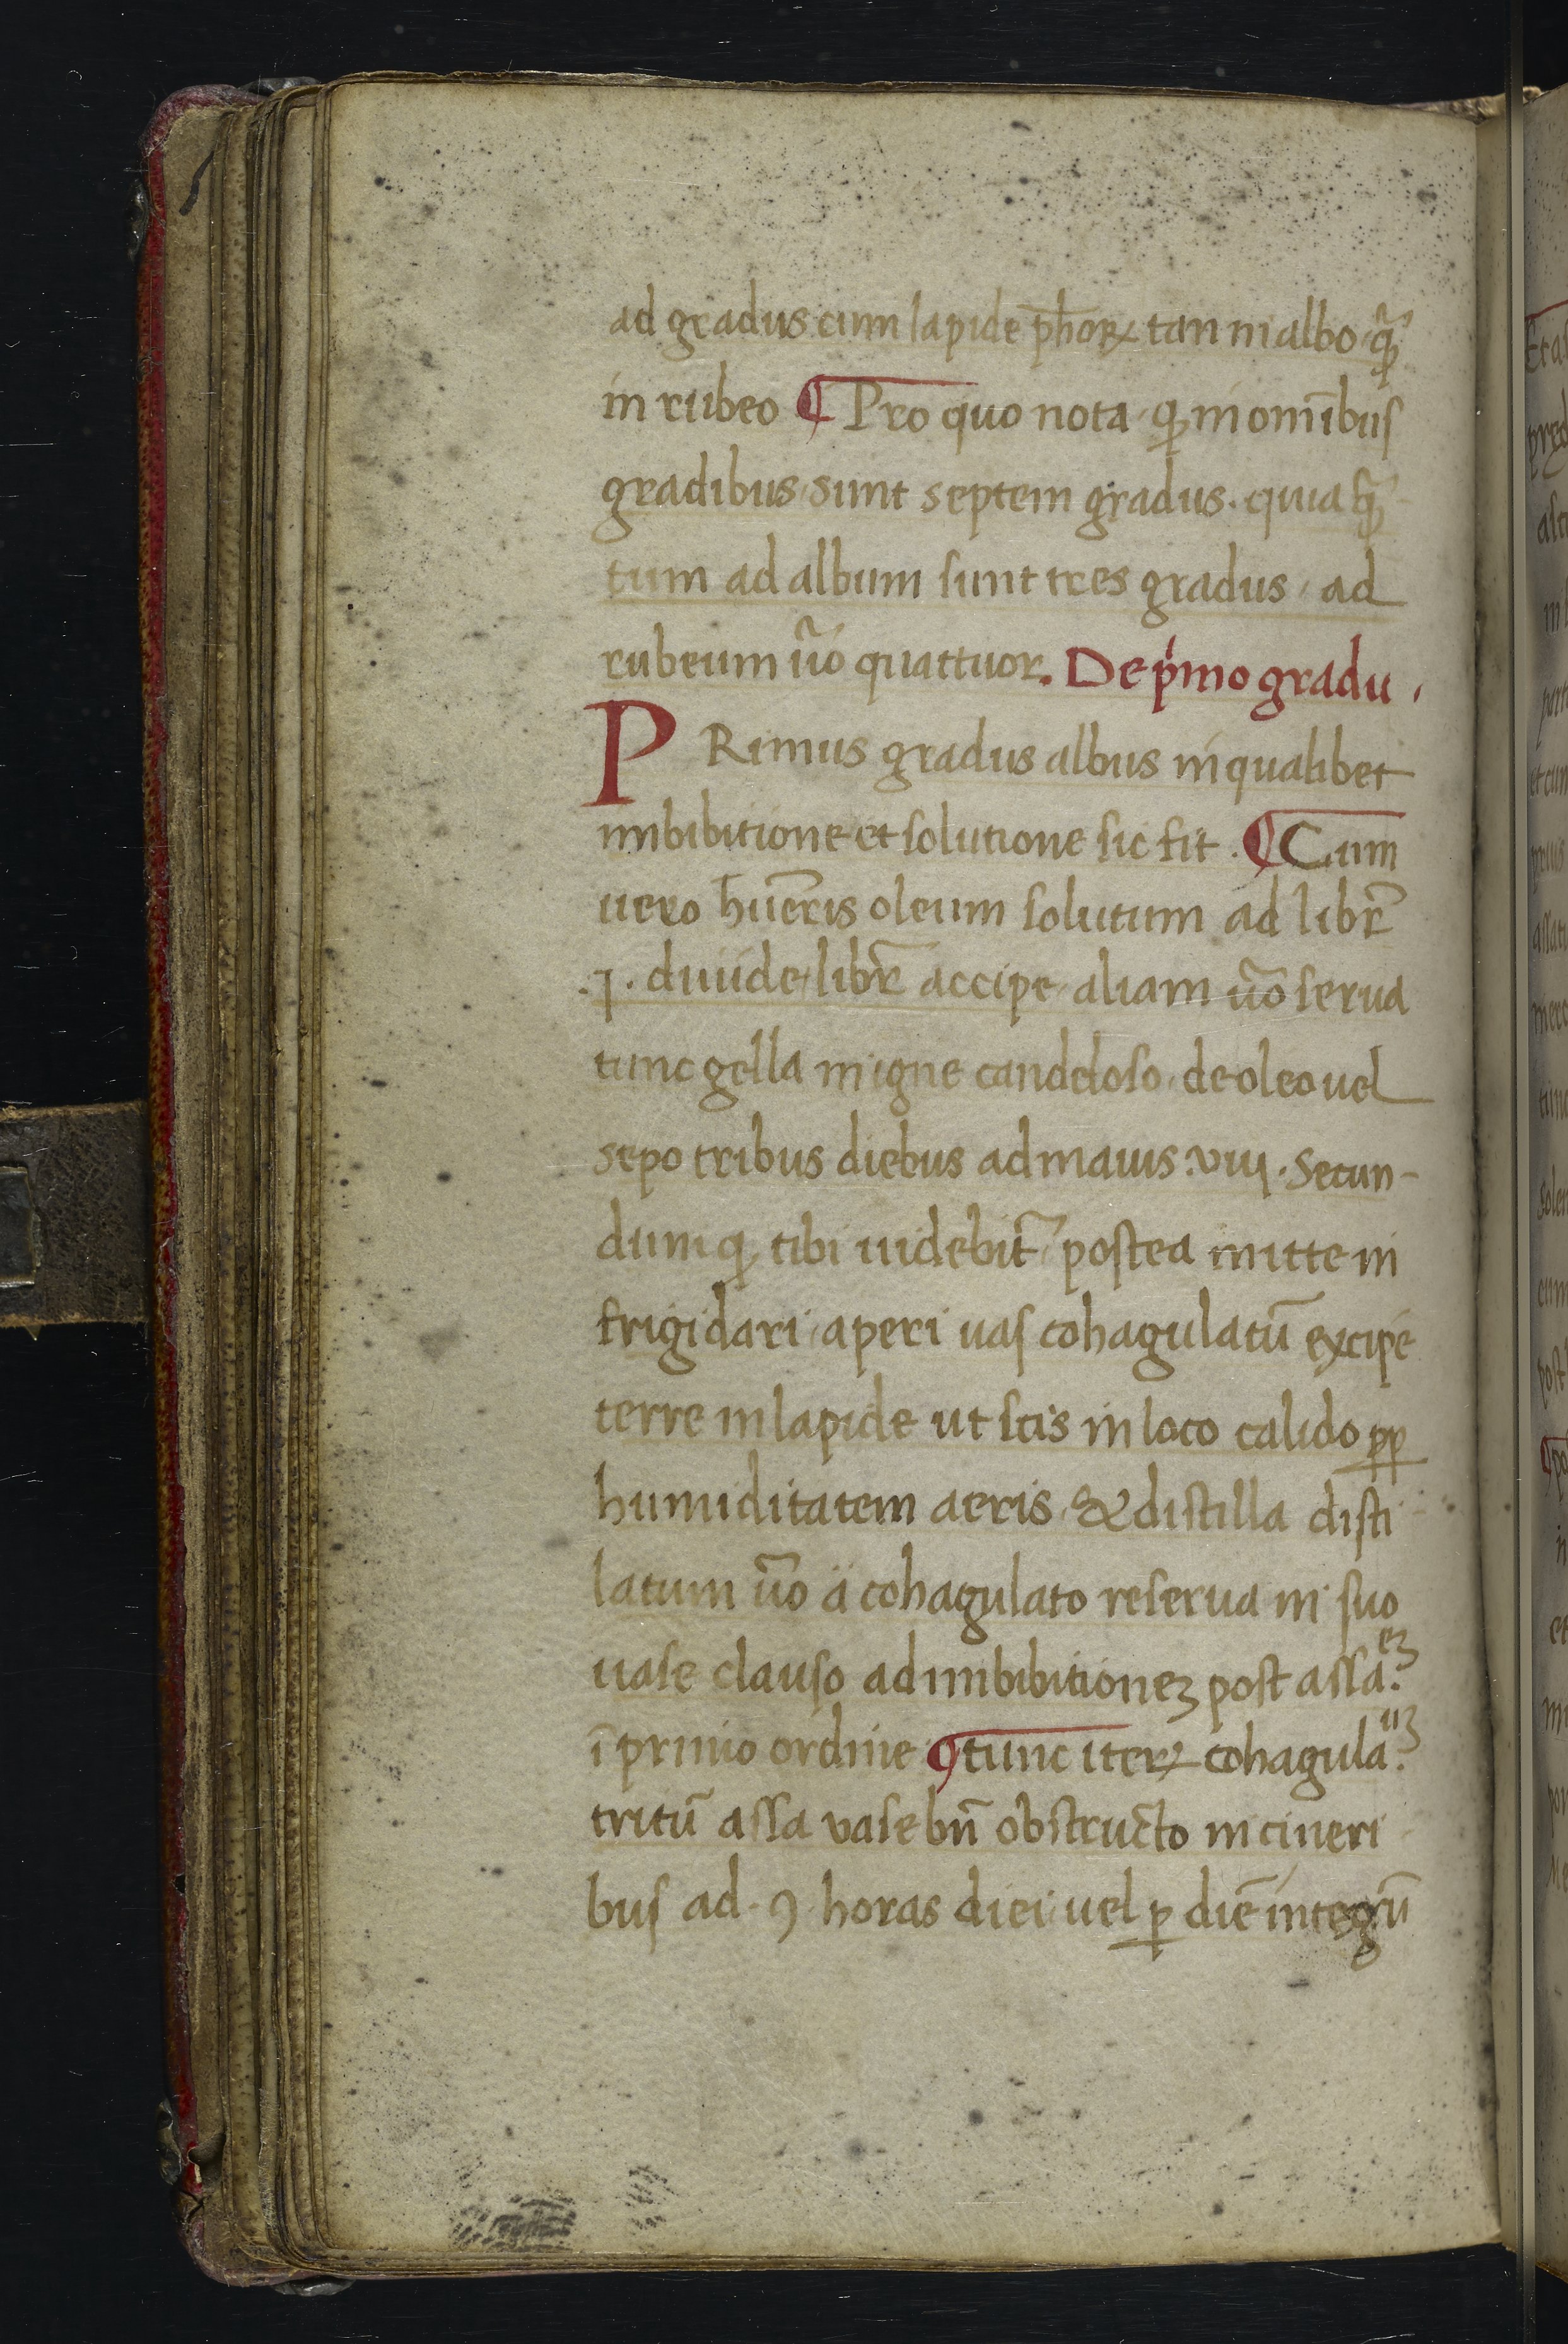 ad gradus cum lapide ph̄oꝝ tan in albo q̃ꝫ
in rubeo ¶ Pro quo nota ꝙ in om̄ibus
gradibus sunt septem gradus. quia
tum ad album sunt tres gradus, ad
rubeum ūo quattuor. De pͥmo gradu.
PRimus gradus albus in qualibet
imbibitione et solutione sic fit. ¶ Cum
uero hūeris oleum solutum ad libr̄
.j. diuide libr̄ accipe aliam ūo serua
tunc gella in igne candeloso, de oleo uel
sepo tribus diebus ad maius .viij. Secun-
dum ꝙ tibi uidebit̄ postea mitte in
frigidari, aperi uas cohagulatū excipe
terre in lapide ut scis in loco calido ꝓꝑ
humiditatem aeris, & distilla disti
latum ūo a cohagulato reserua in suo
uase clauso ad imbibitioneꝫ post assa.ᵉᵐ
ī primo ordine ¶ tunc iteꝝ cohagula.ᵘᵐ
tritū assa vase bn̄ obstructo in cineri
bus ad .9. horas diei uel ꝑ diē integrū